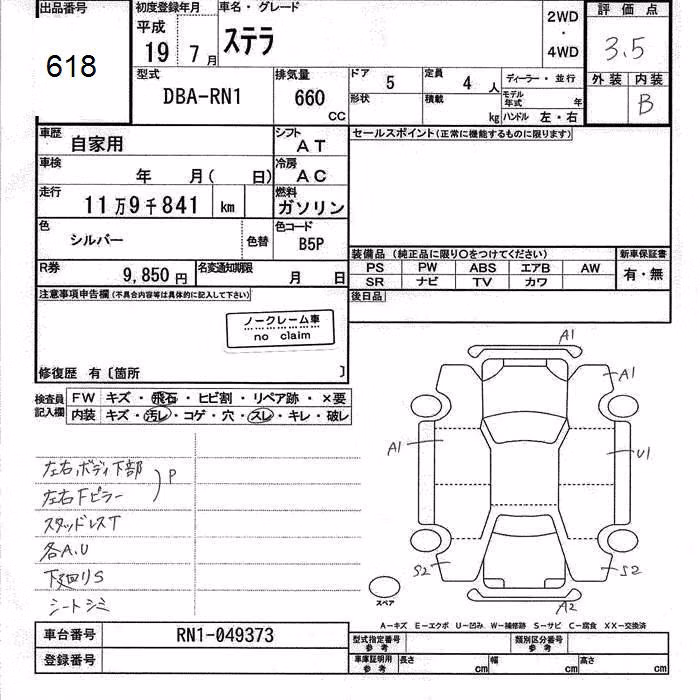 出品番号
618
初度登録年月
平成
19 7月
車名・グレード
ステラ
2WD
・
4WD
評価点
3.5
外装 内装
B
型式
DBA-RN1
排気量
660
CC
ドア
5
定員
4 人
ディーラー・並行
形状
積載
kg
モデル年式 年
ハンドル 左・右
車歴
自家用
シフト
AT
セールスポイント(正常に機能するものに限ります)
車検
年 月( 日)
冷房
AC
走行
11万9千841 km
燃料
ガソリン
色
シルバー
色替
色コード
B5P
装備品(純正品に限り○をつけてください)
新車保証書
PS PW ABS エアB AW
有・無
SR ナビ TV カワ
R券
9,850円
名変通知期限
月 日
後日品
注意事項申告欄(不具合内容等は具体的に記入して下さい)
ノークレーム車
no claim
修復歴 有〔箇所 〕
検査員
記入欄
FW キズ・飛石・ヒビ割・リペア跡・×要
内装 キズ・汚レ・コゲ・穴・スレ・キレ・破レ
左右ボディ下部
左右Fピラー
P
スタッドレスT
各A.U
下廻りS
シートシミ
A1
A1
A1
U1
S2
S2
A2
スペア
A-キズ E-エクボ U-凹み W-補修跡 S-サビ C-腐食 XX-交換済
車台番号
RN1-049373
型式指定番号
参考
類別区分番号
参考
登録番号
車庫証明用
参考
長さ cm
幅 cm
高さ cm